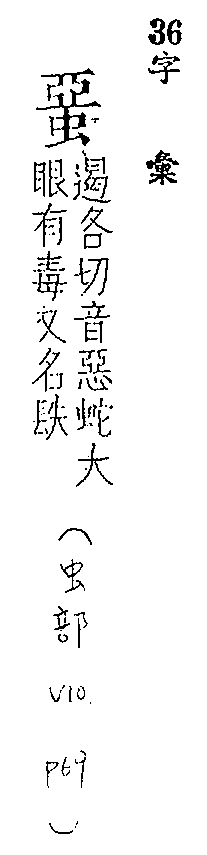 36字 彙
蝁
遏各切音惡蛇大
眼有毒又名镻
(虫部 V10. P69)